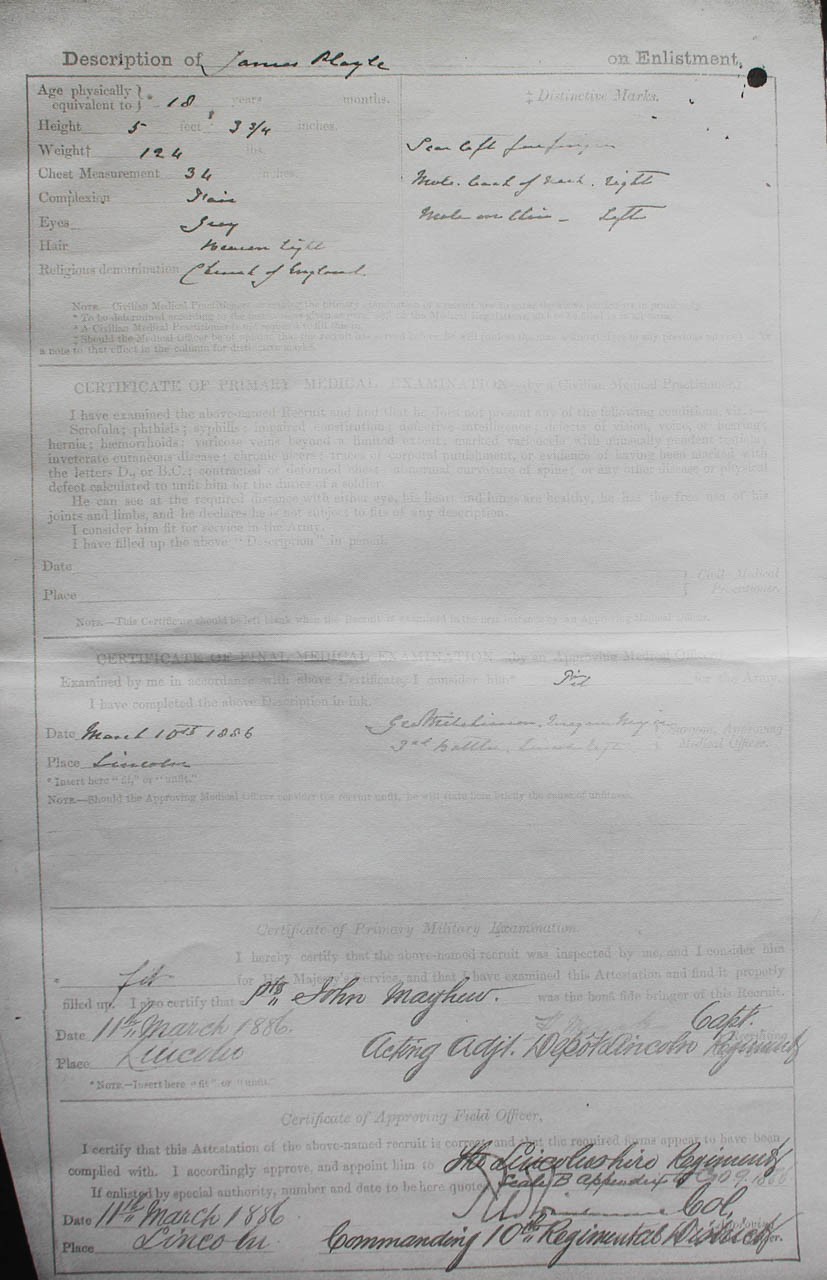 Description of James Playle on Enlistment.
Age physically equivalent to } * 18 years months.
Height 5 feet 3 3/4 inches.
Weight† 124 lbs.
Chest Measurement 34 inches.
Complexion Fair
Eyes Grey
Hair light
Religious denomination Church of England.
‡ Distinctive Marks.
Scar left forefinger
Mole. back of neck. right
Mole on Chin - left
NOTE.— Civilian Medical Practitioner
* To be determined according to the
* A Civilian Medical Practitioner is not required to fill this in.
‡ Should the Medical Officer be of opinion that the recruit has served before, he will
a note to that effect in the column for distinctive marks.
CERTIFICATE OF PRIMARY MEDICAL EXAMINATION by a Civilian Medical Practitioner.
I have examined the above-named Recruit and find that he does not present any of the following conditions, viz.:—
Scrofula; phthisis; syphilis; impaired constitution; defective intelligence; defects of vision, voice, or hearing;
hernia; hæmorrhoids; varicose veins beyond a limited extent; marked varicocele with unusually pendent testicle;
inveterate cutaneous disease; chronic ulcers; traces of corporal punishment, or evidence of having been marked with
the letters D., or B.C.; contracted or deformed chest; abnormal curvature of spine; or any other disease or physical
defect calculated to unfit him for the duties of a soldier.
He can see at the required distance with either eye; his heart and lungs are healthy; he has the free use of his
joints and limbs, and he declares he is not subject to fits of any description.
I consider him fit for service in the Army.
I have filled up the above "Description" in pencil.
Date
Place
} Civil Medical Practitioner.
NOTE.—This Certificate should be left blank when the Recruit is examined in the first instance by an Approving Medical Officer.
CERTIFICATE OF FINAL MEDICAL EXAMINATION by an Approving Medical Officer.
Examined by me in accordance with above Certificate, I consider him* Fit for the Army.
I have completed the above Description in ink.
Date March 10th 1886
Geo Mitchinson, Surgeon Major
3rd Battln. Lincoln Regt } Surgeon, Approving Medical Officer.
Place Lincoln
* Insert here "fit," or "unfit."
NOTE.—Should the Approving Medical Officer consider the recruit unfit, he will state here briefly the cause of unfitness.
Certificate of Primary Military Examination.
I hereby certify that the above-named recruit was inspected by me, and I consider him
* fit for Her Majesty's Service, and that I have examined this Attestation and find it properly
filled up. I also certify that Pte John Mayhew. was the bonâ fide bringer of this Recruit.
Date 11th March 1886. Capt.
Place Lincoln Acting Adjt. Depôt Lincoln Regiment
* NOTE.—Insert here "fit" or "unfit."
Certificate of Approving Field Officer.
I certify that this Attestation of the above-named recruit is correct, and that the required forms appear to have been
complied with. I accordingly approve, and appoint him to the Lincolnshire Regiment
If enlisted by special authority, number and date to be here quoted Scale B appendix 1886
Date 11th March 1886 Col.
Place Lincoln Commanding 10th Regimental District